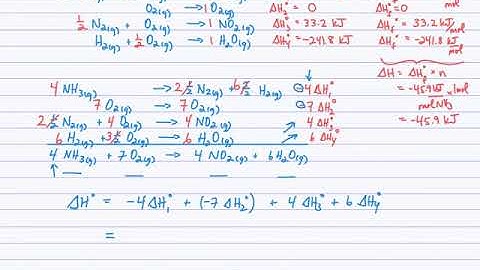 O₂(g) → 1 O₂(g) ΔH₂° = 0 ΔHf° = 0
1/2 N₂(g) + O₂(g) → 1 NO₂(g) ΔH₃° = 33.2 kJ ΔHf° = 33.2 kJ/mol
H₂(g) + 1/2 O₂(g) → 1 H₂O(g) ΔH₄° = -241.8 kJ ΔHf° = -241.8 kJ/mol
ΔH = ΔHf° × n
4 NH₃(g) → 2 N₂(g) + 6 H₂(g) -4 ΔH₁° = -45.9 kJ/mol NH₃ × 1 mol
7 O₂(g) → 7 O₂(g) -7 ΔH₂° = -45.9 kJ
2 N₂(g) + 4 O₂(g) → 4 NO₂(g) 4 ΔH₃°
6 H₂(g) + 3 O₂(g) → 6 H₂O(g) 6 ΔH₄°
4 NH₃(g) + 7 O₂(g) → 4 NO₂(g) + 6 H₂O(g)
ΔH° = -4 ΔH₁° + (-7 ΔH₂°) + 4 ΔH₃° + 6 ΔH₄°
=